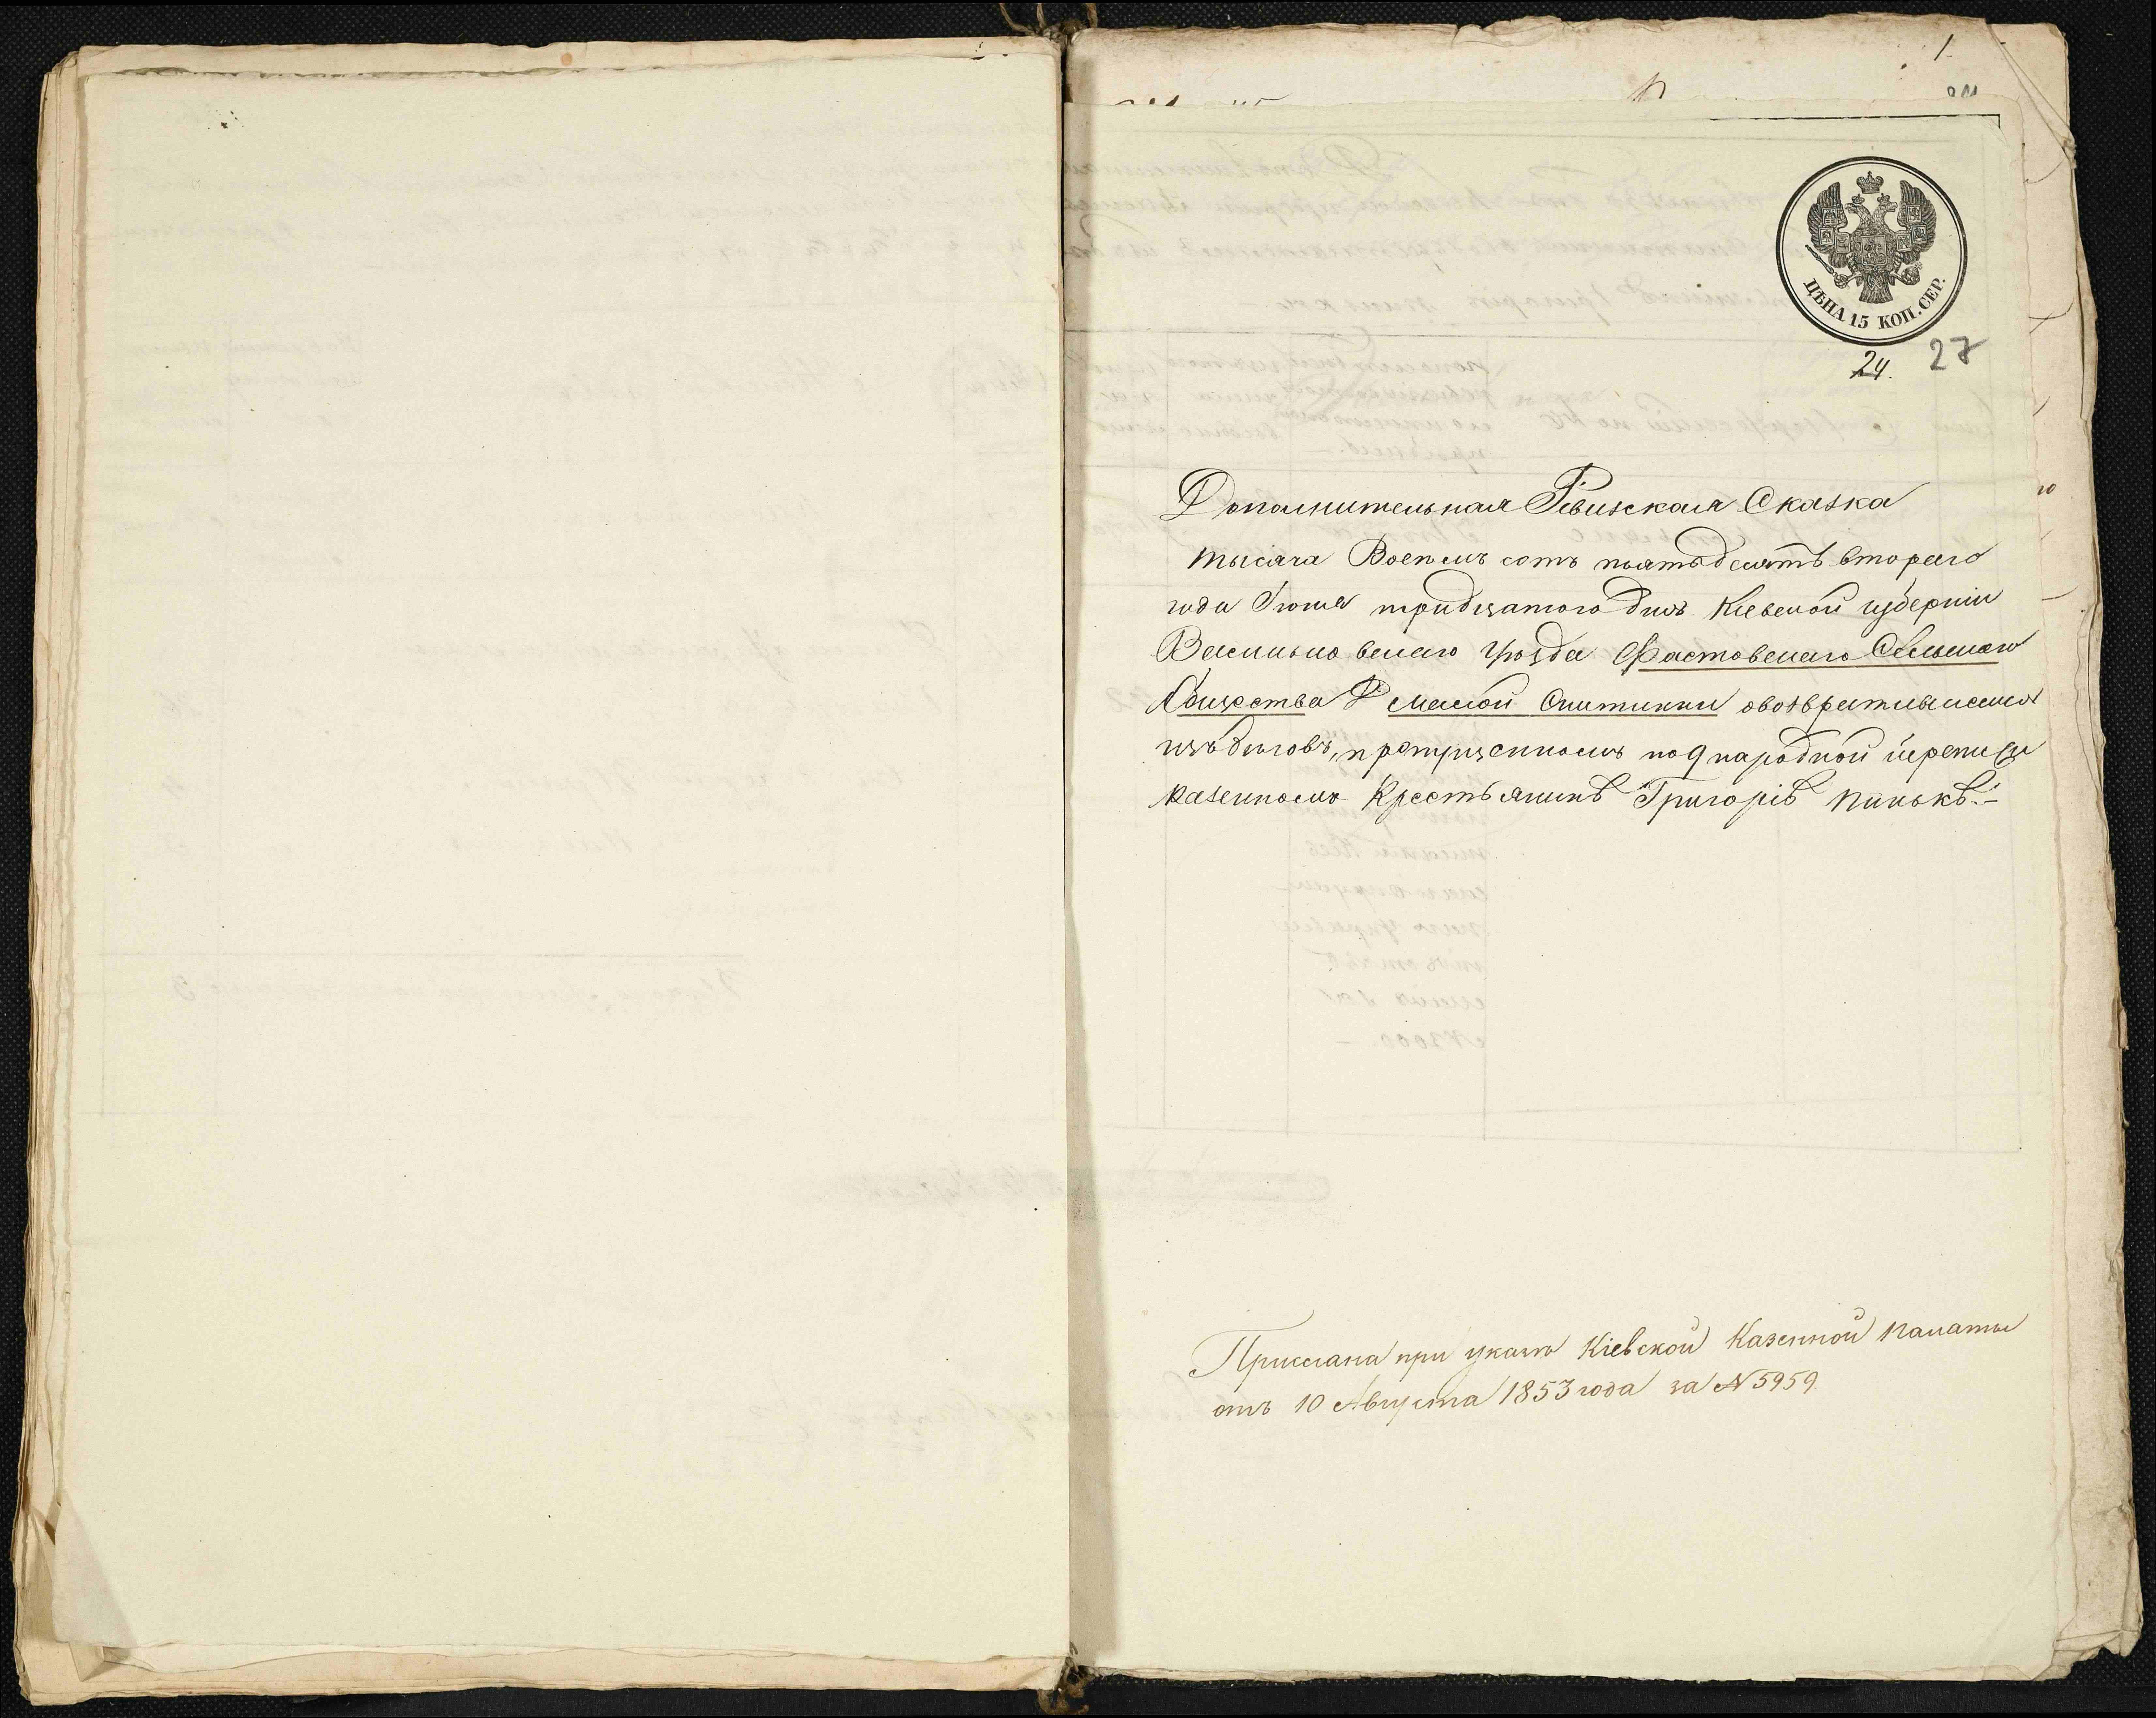 1
ЦѢНА 15 КОП. СЕР.
24. 27
Дополнительная Ревизская Сказка
тысяча Восемь сотъ пятьдесятъ втораго
года Іюня тридцатого дня Кіевской губерніи
Васильковскаго Уѣзда Фастовскаго Сельскаго
Общества Д Малой Снитинки овозвратившемся
изъ бѣговъ, и пропущенномъ по 9 народной переписи
казенномъ Крестьянинѣ Григоріѣ
Прислана при указѣ Кіевской Казенной Палаты
отъ 10 Августа 1853 года за N 5959